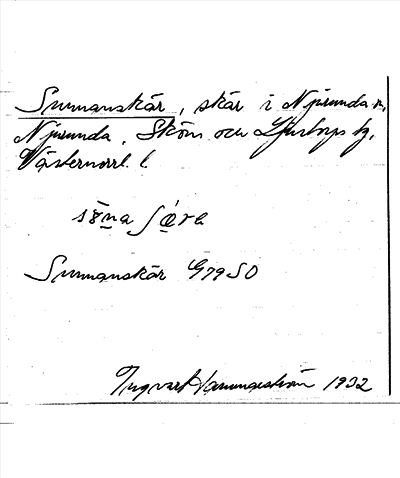 Sunnanskär, skär i Njurunda n,
Njurunda, Sköns och Ljustorps tg,
Västernorrl. l
Sunnanskär G79SO
Ingvart Hammarström 1932